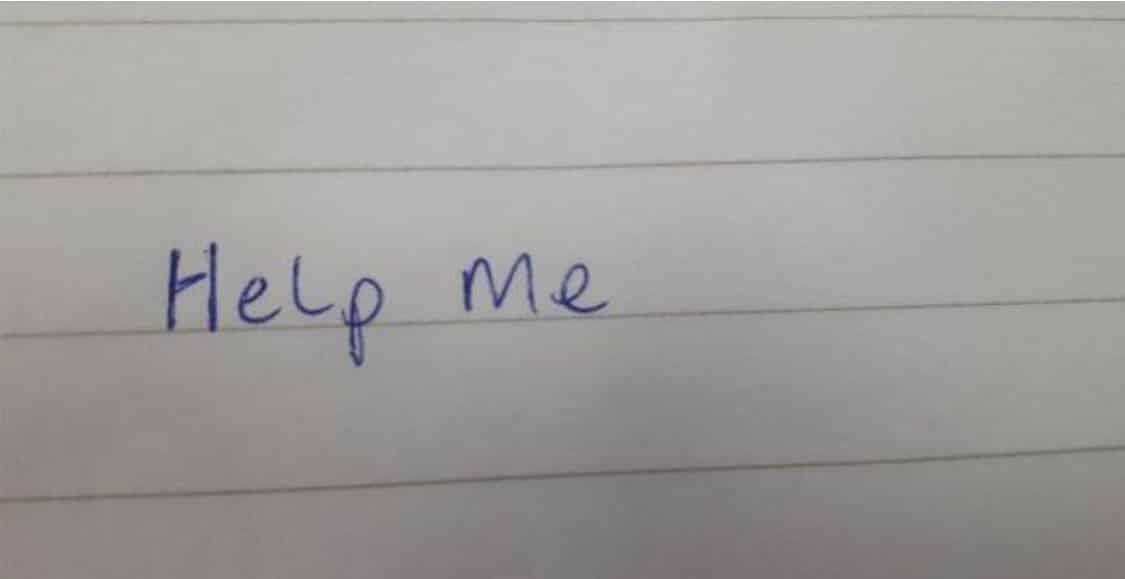 Help Me